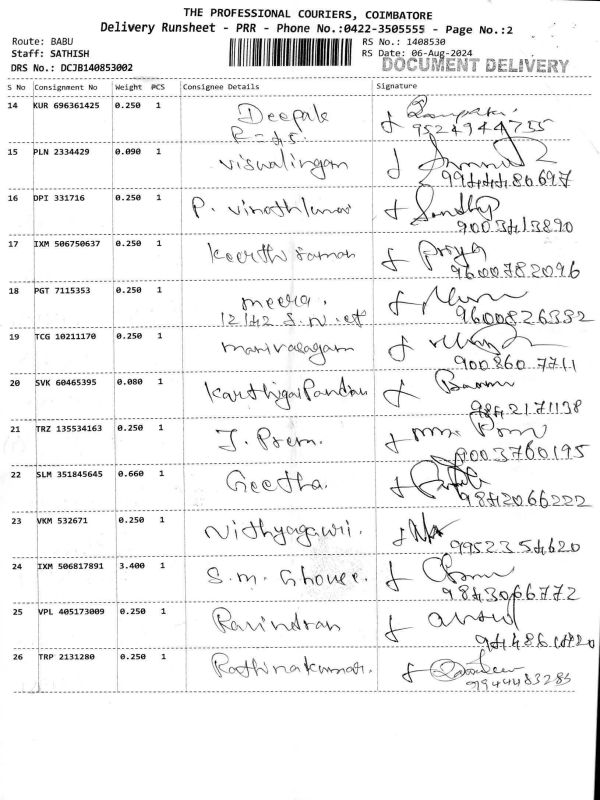 THE PROFESSIONAL COURIERS, COIMBATORE
Delivery Runsheet - PRR - Phone No.:0422-3505555 - Page No.:2
Route: BABU
Staff: SATHISH
DRS No.: DCJB140853002
RS No.: 1408530
RS Date: 06-Aug-2024
DOCUMENT DELIVERY
S No Consignment No Weight PCS Consignee Details Signature
14 KUR 696361425 0.250 1 Deepak
9524944755
15 PLN 2334429 0.090 1 Viswalingam
9944486697
16 DPI 331716 0.250 1 P. Vinothkumar Sandhya
9003413890
17 IXM 506750637 0.250 1 Keerthi raman Priya
9600782096
18 PGT 7115353 0.250 1 meera.
12/42 S.N. st 9600826332
19 TCG 10211170 0.250 1 manivasagam
900860 7711
20 SVK 60465395 0.080 1 Karthigai Pandian
9842171138
21 TRZ 135534163 0.250 1 J. Prem.
9003760195
22 SLM 351845645 0.660 1 Geetha.
9842066222
23 VKM 532671 0.250 1 Nithyagawri.
9952354620
24 IXM 506817891 3.400 1 S.m. Ghouse.
9843066772
25 VPL 405173009 0.250 1 Ravindran
26 TRP 2131280 0.250 1 Rathinakumar.
9944483285